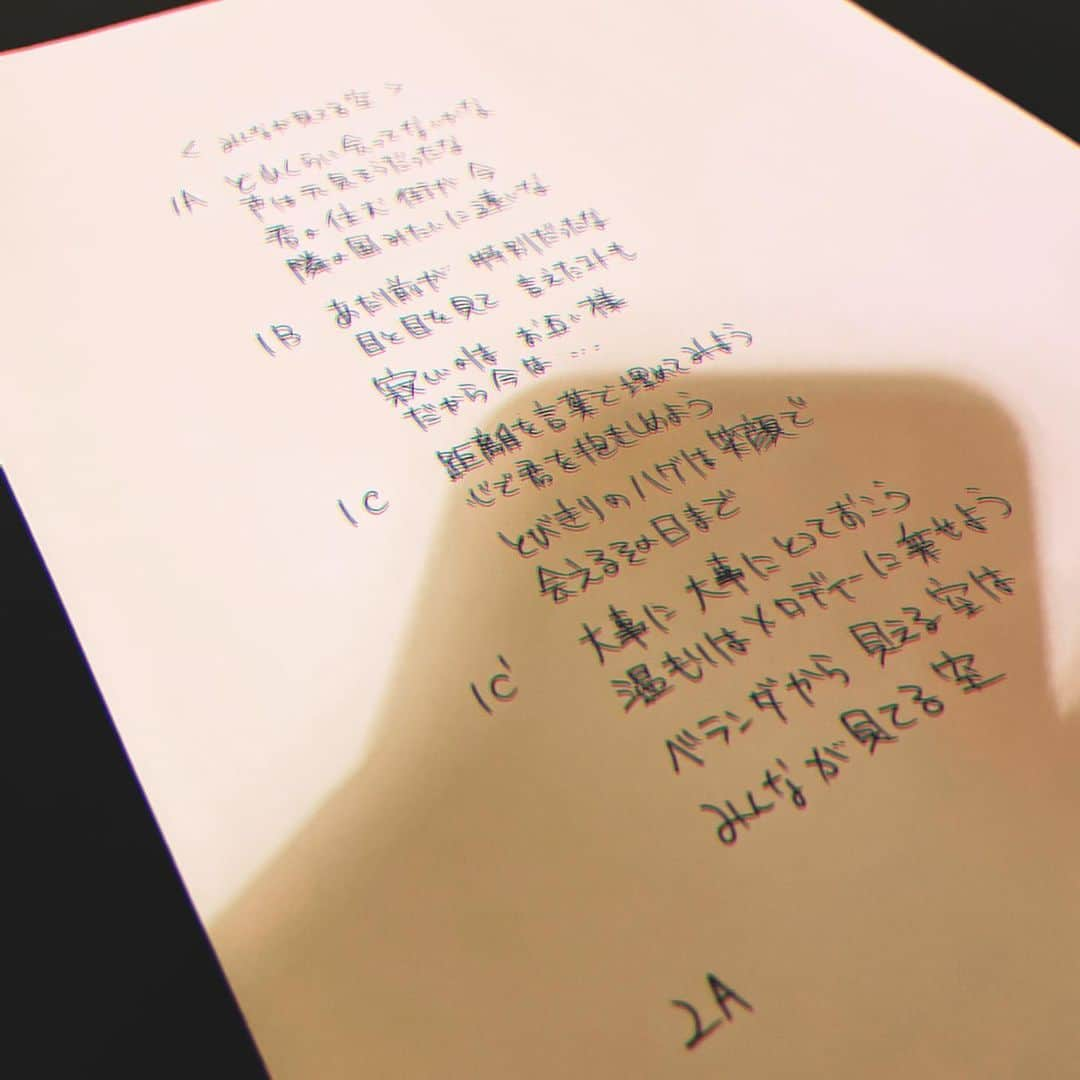 < みんなが見てる空 >
1A どれくらい会ってないかな
声は元気そうだったな
君の住む街が今
隣の国みたいに遠いな
1B あたり前が 特別だったな
目と目を見て 言えたコトも
寂しいのは お互い様
だから今は…
1C 距離を言葉で埋めてみよう
心で君を抱きしめよう
とびきりのハグは笑顔で
会えるその日まで
1C' 大事に 大事にとっておこう
温もりはメロディーに乗せよう
ベランダから 見える空は
みんなが見てる空
2A